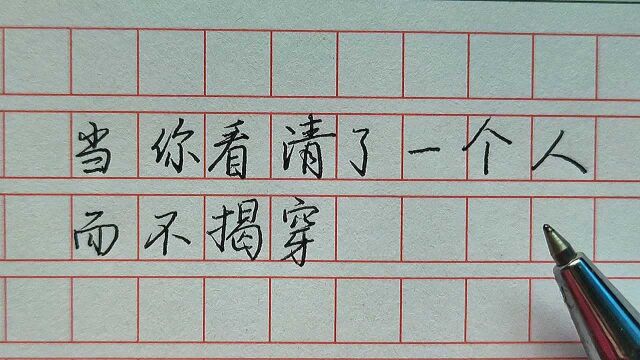 当你看清了一个人
而不揭穿